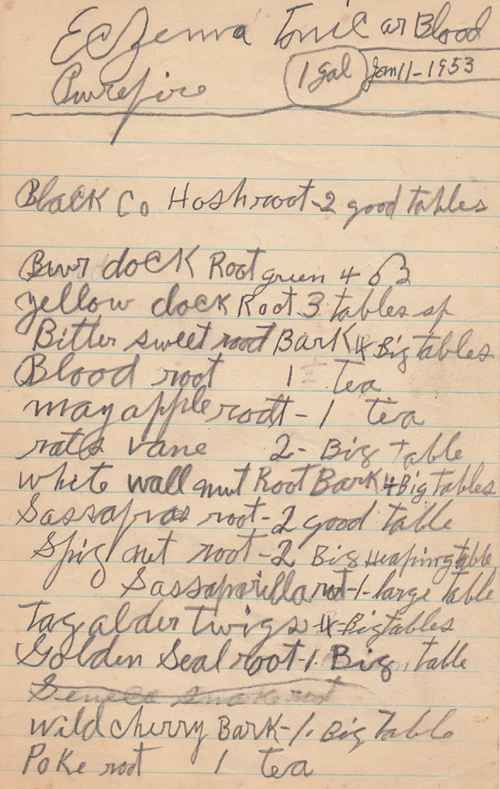 Eczema Tonic or Blood
Purefire 1 gal Jan 11-1953
Black Co Hoshroot-2 good tables
Burdock Root green 4 oz
yellow dock Root 3 tables sp
Bitter sweet root Bark 4 Big tables
Blood root 1 Tea
may apple root-1 tea
rats vane 2-Big table
white wall nut Root Bark 4 Big tables
Sassafras root-2 good table
Spig net root-2 Big heaping table
Sassaparilla root-1-large table
Tag alder twigs 4-Big tables
Golden Seal root-1. Big table
Seneca Snake root
wild cherry Bark-1. Big Table
Poke root 1 Tea